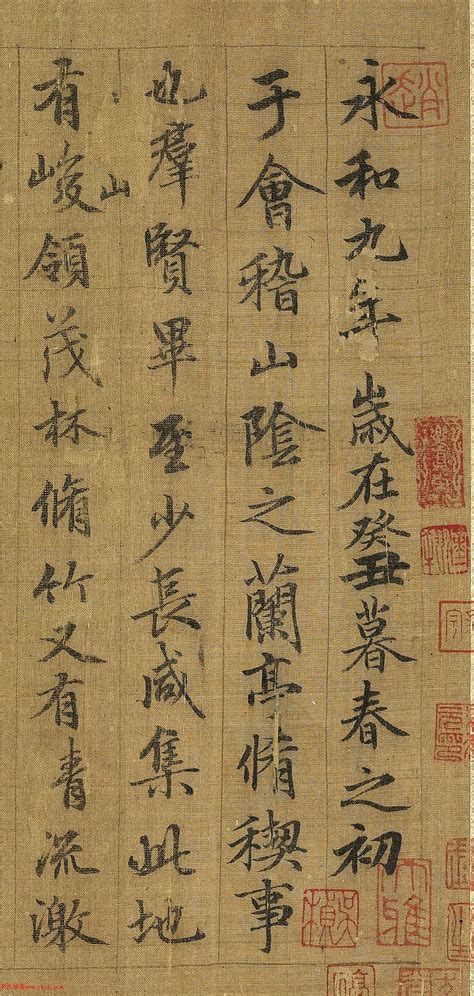 永和九年歲在癸丑暮春之初
于會稽山陰之蘭亭脩稧事
也羣賢畢至少長咸集此地
山
有峻領茂林脩竹又有青流激